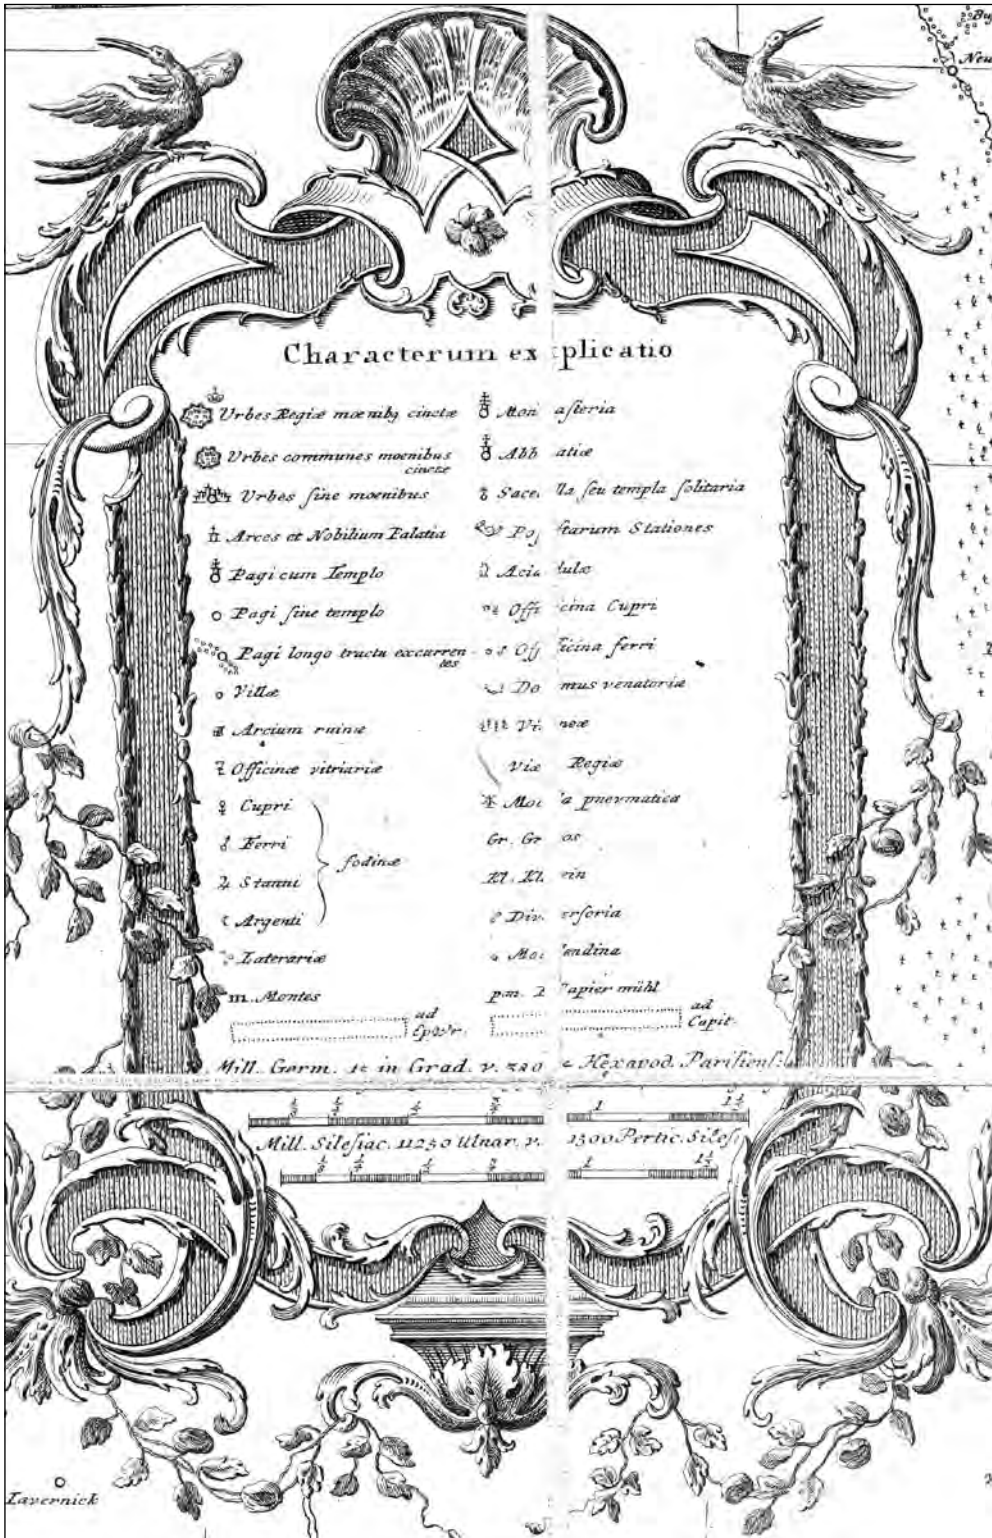 Neu
Characterum explicatio
Urbes Regiæ mœnibꝫ cinctæ
Urbes communes moenibus
cinctæ
Urbes ſine moenibus
Arces et Nobilium Palatia
Pagi cum Templo
Pagi ſine templo
Pagi longo tractu excurren-
tes
Villæ
Arcium ruinæ
Officinæ vitriariæ
Cupri
Ferri
fodinæ
Stanni
Argenti
Laterariæ
m. Montes
ad
Ep. Wr.
Monaſteria
Abbatiæ
Sacella ſeu templa ſolitaria
Poſtarum Stationes
Acidulæ
Officina Cupri
Officina ferri
Domus venatoriæ
Vineæ
Viæ Regiæ
Mola pnevmatica
Gr. Gros
Kl. Klein
Diverſoria
Molendina
p.m. Papier mühl
ad
Capit.
Mill. Germ. 15 in Grad. v. Hexapod. Pariſienſ.
1/8 1/4 1/2 3/4 1 1 1/2
Mill. Sileſiac. 11250 Ulnar. v. 1500 Pertic. Sileſ.
1/8 1/4 1/2 3/4 1 1 1/2
Tavernick